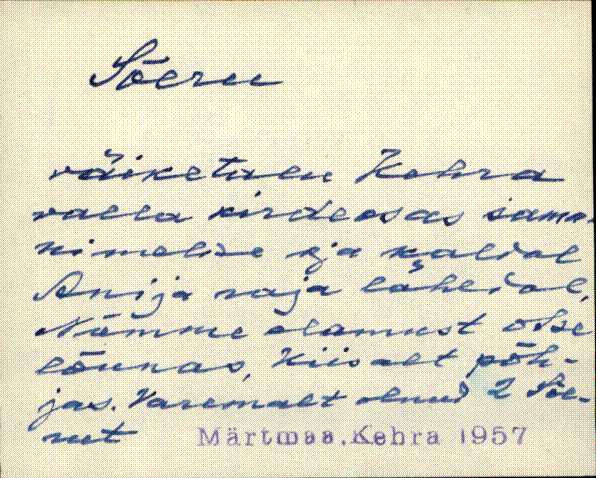 Sõeru
väiketalu Kehra
valla kirdeosas sama-
nimelise oja kaldal
Anija raja lähedal,
Nõmme elamust otse
lõunas, Kiisalt põh-
jas. Varemalt olnud 2 Sõe-
rut Märtmaa, Kehra 1957